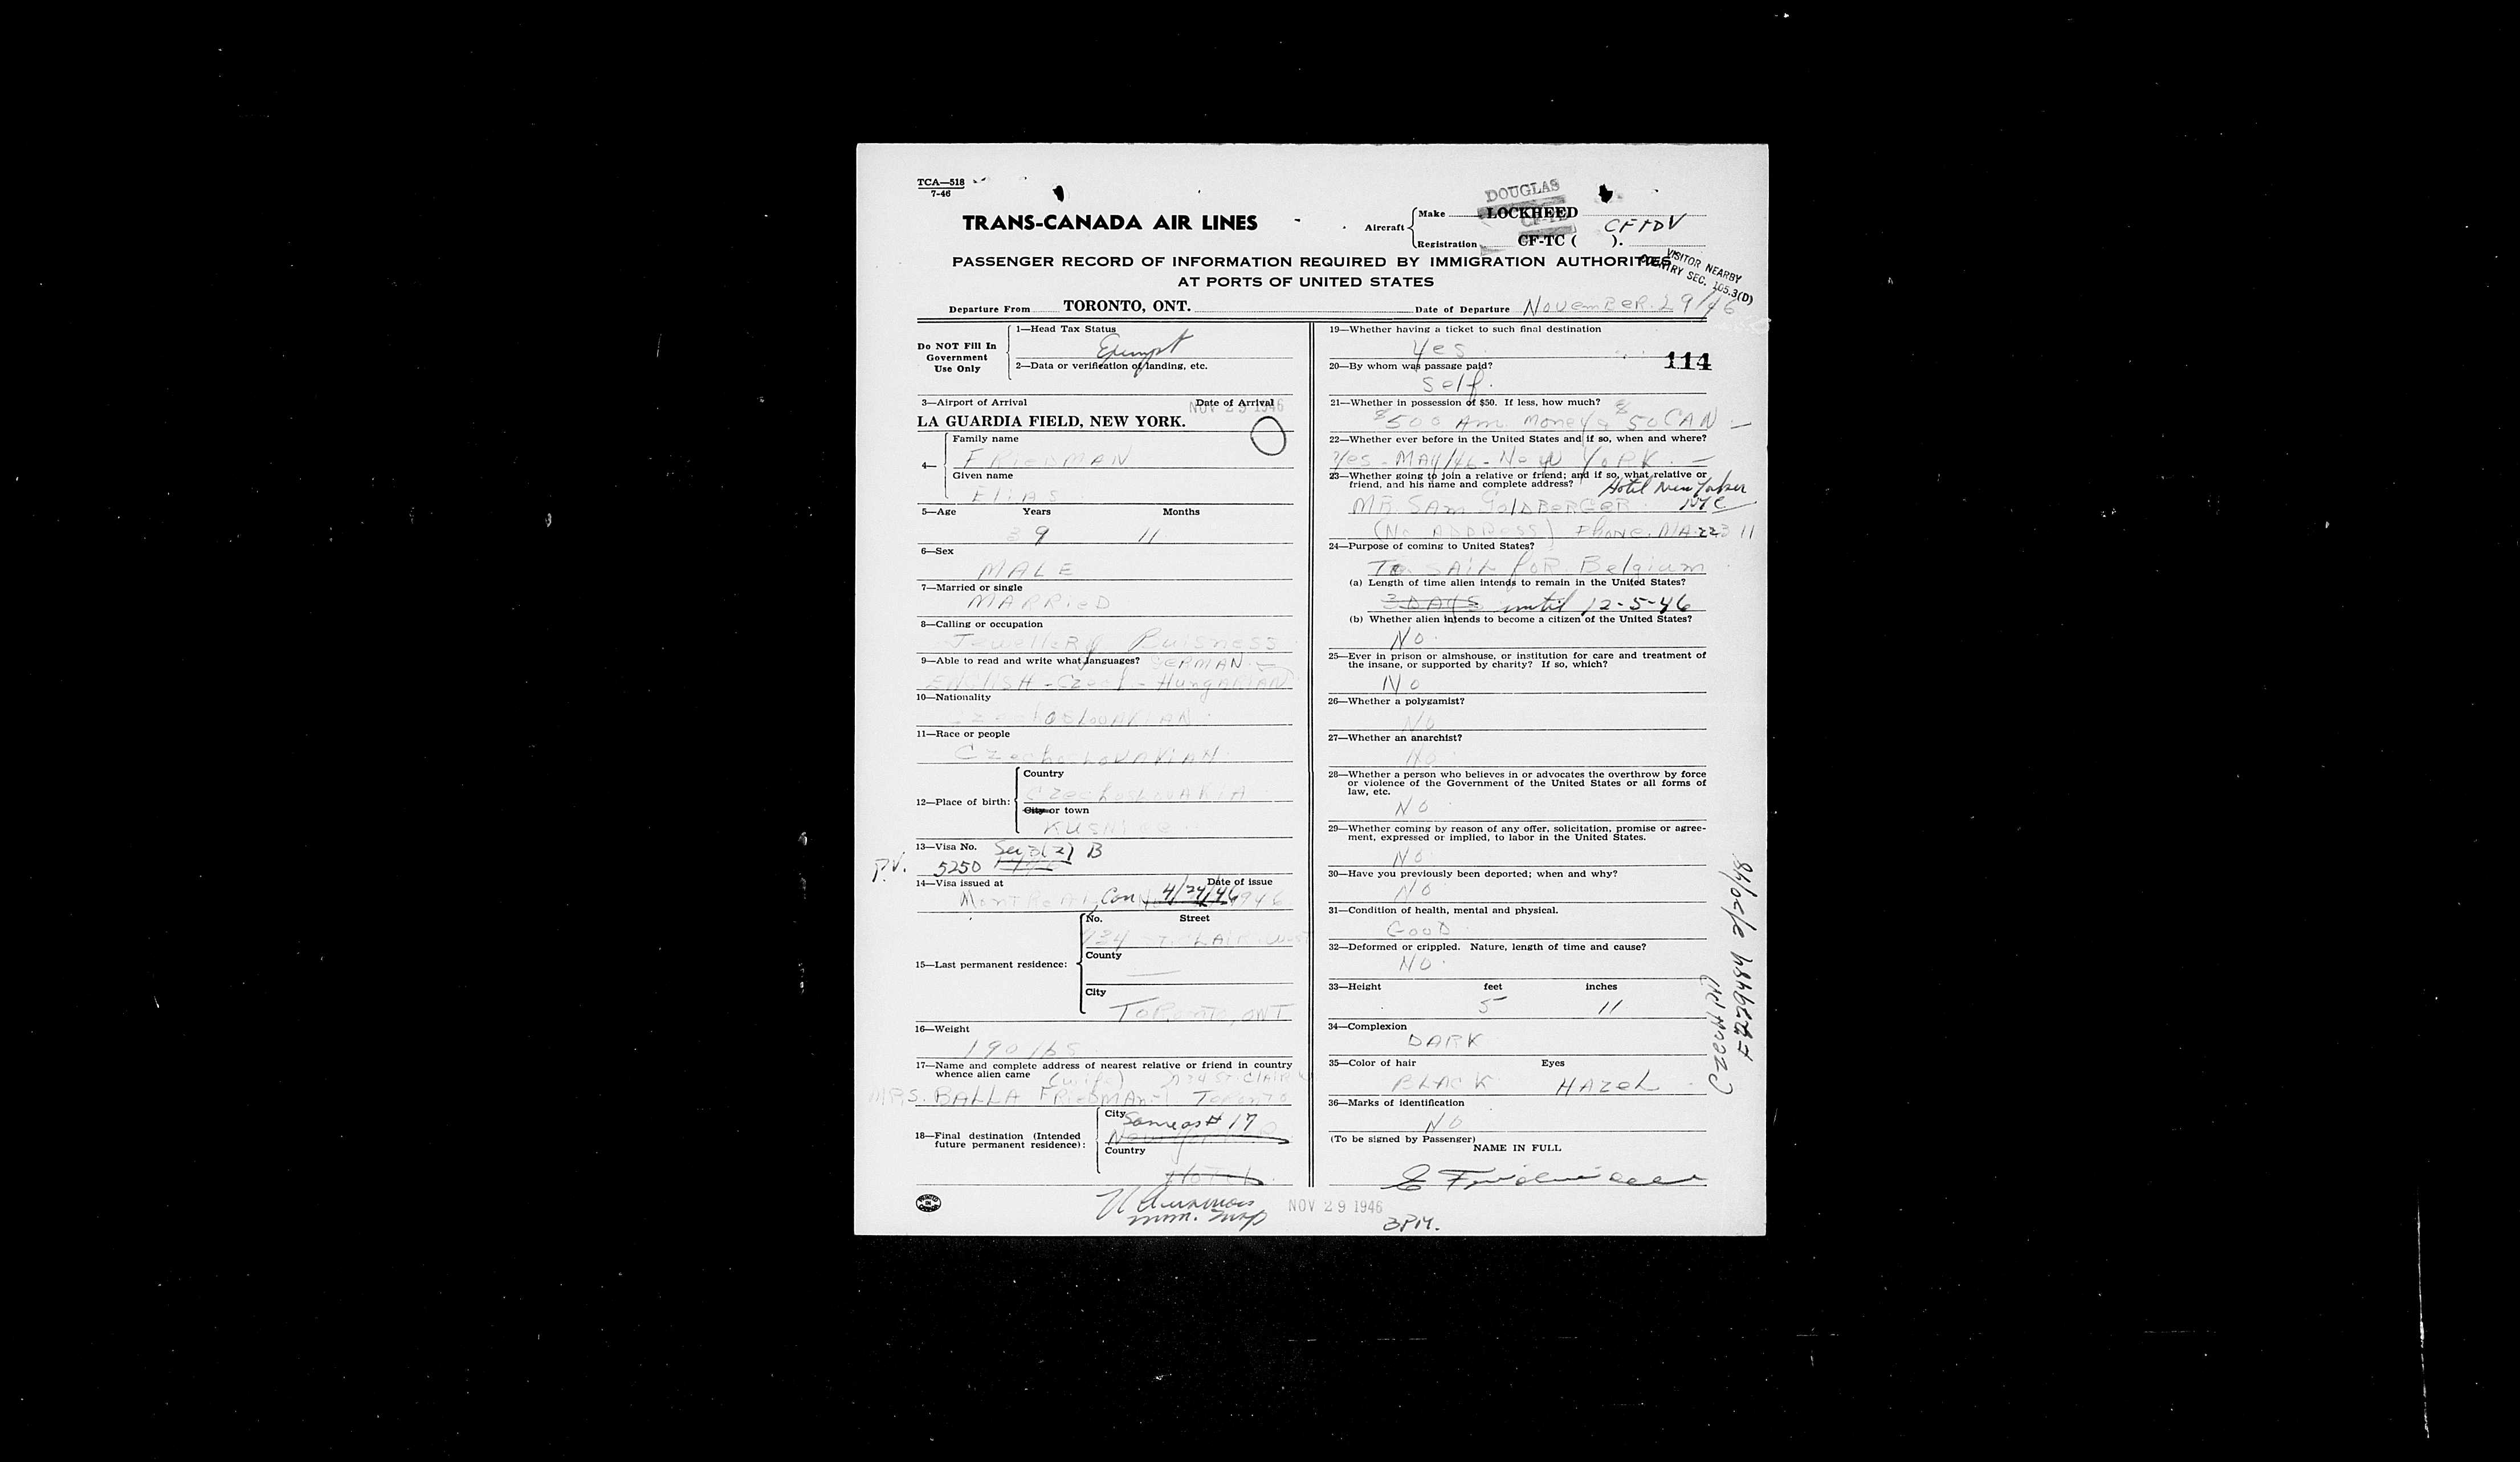 TCA—518
7-46
TRANS-CANADA AIR LINES
DOUGLAS
Aircraft
Make LOCKHEED
Registration CF-TC ( ). CFTDV
PASSENGER RECORD OF INFORMATION REQUIRED BY IMMIGRATION AUTHORITIES
AT PORTS OF UNITED STATES
VISITOR NEARBY
COUNTRY SEC. 105.3(D)
Departure From TORONTO, ONT. Date of Departure NOVEMBER 29/46
Do NOT Fill In Government Use Only
1—Head Tax Status
Exempt
2—Data or verification of landing, etc.
3—Airport of Arrival Date of Arrival
NOV 29 1946
LA GUARDIA FIELD, NEW YORK.
4—
Family name
FRIEDMAN
Given name
ELIAS
5—Age Years Months
39 11
6—Sex
MALE
7—Married or single
MARRIED
8—Calling or occupation
JEWELLERY BUISNESS
9—Able to read and write what languages? GERMAN
ENGLISH - Czech - HUNGARIAN
10—Nationality
Czechoslovakian
11—Race or people
Czechoslovakian
12—Place of birth:
Country
Czechoslovakia
City or town
13—Visa No. Sec 3(2) B
P.V. 5250
14—Visa issued at Date of issue
MONTREAL, Can 4/24/46 1946
15—Last permanent residence:
No. Street
ST. CLAIR West
County
—
City
TORONTO, ONT
16—Weight
190 lbs
17—Name and complete address of nearest relative or friend in country
whence alien came (wife) ST. CLAIR W
MRS. BALLA FRIEDMAN TORONTO
18—Final destination (Intended
future permanent residence):
City Same as # 17
New York
Country
HOTEL
imm. insp
NOV 29 1946
19—Whether having a ticket to such final destination
Yes
114
20—By whom was passage paid?
Self.
21—Whether in possession of $50. If less, how much?
$500 Am. Money & $50 CAN —
22—Whether ever before in the United States and if so, when and where?
Yes - MAY/46 - New YORK. —
23—Whether going to join a relative or friend; and if so, what relative or
friend, and his name and complete address? Hotel New Yorker
MR. SAM GOLDBERGER NYC
(No ADDRESS) Phone. 
24—Purpose of coming to United States?
To SAIL FOR Belgium
(a) Length of time alien intends to remain in the United States?
3 DAYS until 12-5-46
(b) Whether alien intends to become a citizen of the United States?
No.
25—Ever in prison or almshouse, or institution for care and treatment of
the insane, or supported by charity? If so, which?
No
26—Whether a polygamist?
No
27—Whether an anarchist?
No
28—Whether a person who believes in or advocates the overthrow by force
or violence of the Government of the United States or all forms of
law, etc.
NO
29—Whether coming by reason of any offer, solicitation, promise or agree-
ment, expressed or implied, to labor in the United States.
No
30—Have you previously been deported; when and why?
NO
31—Condition of health, mental and physical.
GOOD
32—Deformed or crippled. Nature, length of time and cause?
NO.
33—Height feet inches
5 11
34—Complexion
DARK
35—Color of hair Eyes
BLACK HAZEL
36—Marks of identification
NO
(To be signed by Passenger)
NAME IN FULL
E Friedman
3PM.
Czech PP
F279484 2/20/48